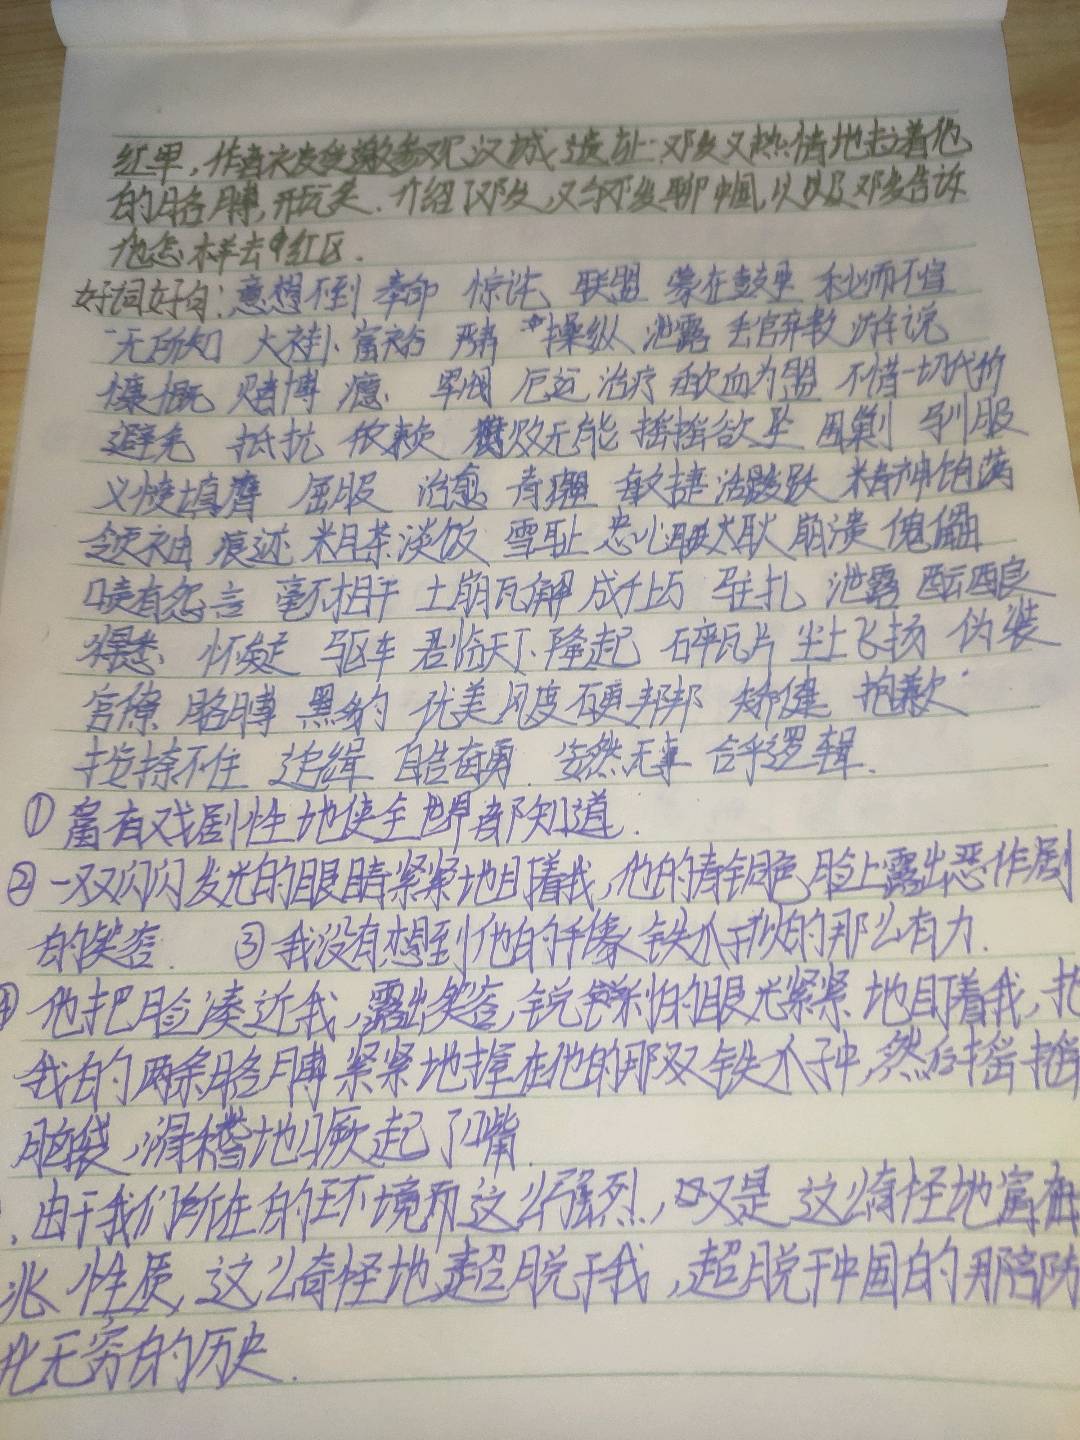 红军,作者次度受邀参观汉城遗址.邓发又热情地拉着他
的胳膊,开玩笑.介绍邓发,又与邓发聊中国,以及邓发告诉
他怎样去红区.
好词好句:意想不到 奉命 惊诧 联盟 蒙在鼓里 秘而不宣
一无所知 大褂 富裕 操纵 泄露 丢官弃教 游说
慷慨 赌博 瘾 军阀 厄运 治疗 歃血为盟 不惜一切代价
避免 抵抗 依赖 腐败无能 摇摇欲坠 围剿 驯服
义愤填膺 屈服 治愈 青瓓 敏捷 活跃 精神饱满
领袖 痕迹 粗茶淡饭 雪耻 忠心耿耿 崩溃 傀儡
啧有怨言 毫不相干 土崩瓦解 成千上万 驻扎 泄露 酝酿
得悉 怀疑 驱车 君临天下 隆起 碎瓦片 尘土飞扬 伪装
官僚 胳膊 黑豹 优美 风度 硬邦邦 矫健 抱歉
按捺不住 追缉 自告奋勇 安然无事 合乎逻辑.
①富有戏剧性地使全世界都知道.
②一双闪闪发光的眼睛紧紧地盯着我,他的青铜色脸上露出恶作剧
的笑容. ③我没有想到他的手像铁爪子似的那么有力.
④他把脸凑近我,露出笑容,锐利的眼光紧紧地盯着我,把
我的两条胳膊紧紧地握在他的那双铁爪子中,然后摇摇
脑袋,滑稽地噘起了嘴.
由于我们所在的环境而这么强烈,又是这么奇怪地富有
兆性质,这么奇怪地超脱于我,超脱于中国的那部
化无穷的历史.